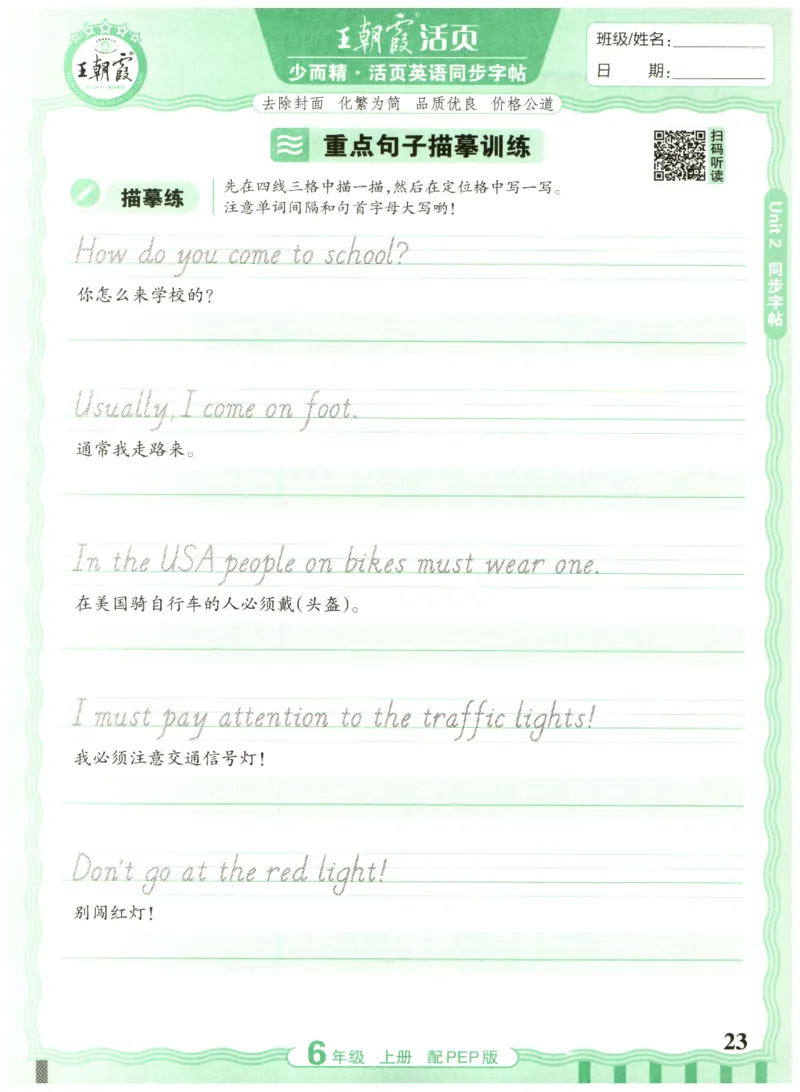 王朝霞
王朝霞活页
少而精·活页英语同步字帖
班级/姓名:
日 期:
去除封面 化繁为简 品质优良 价格公道
重点句子描摹训练
扫码听读
描摹练
先在四线三格中描一描,然后在定位格中写一写。
注意单词间隔和句首字母大写哟!
Unit 2 同步字帖
How do you come to school?
你怎么来学校的?
Usually, I come on foot.
通常我走路来。
In the USA people on bikes must wear one.
在美国骑自行车的人必须戴(头盔)。
I must pay attention to the traffic lights!
我必须注意交通信号灯!
Don't go at the red light!
别闯红灯!
6年级 上册 配PEP版
23